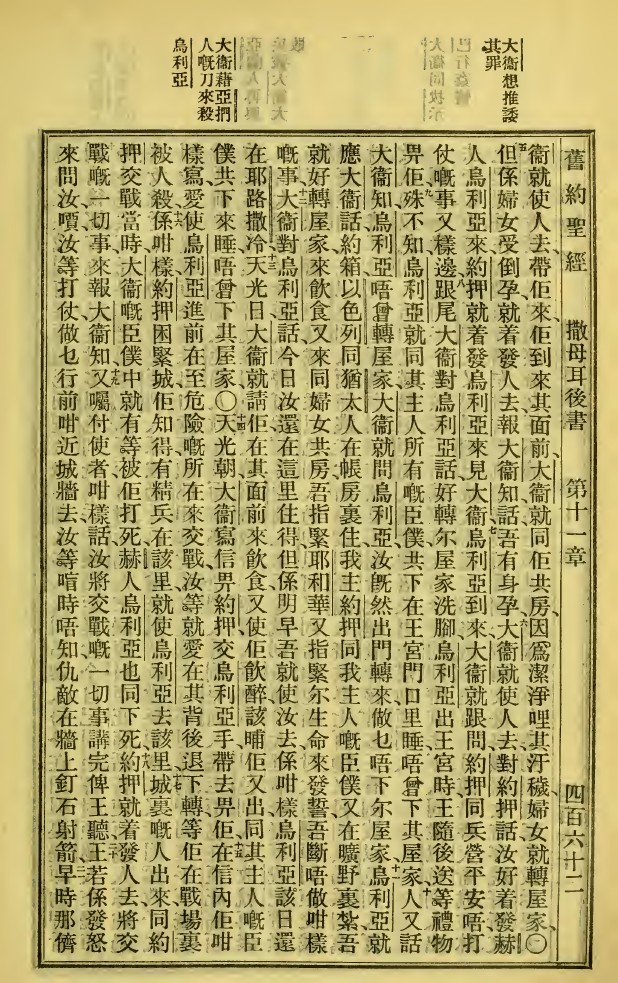 大衞想推諉
其罪
大衞藉亞捫
人嘅刀來殺
烏利亞
舊約聖經 撒母耳後書 第十一章 四百六十二
衞就使人去、帶佢來、佢到來其面前、大衞就同佢共房、因爲潔淨哩其汙穢、婦女就轉屋家、〇
五但係婦女受倒孕、就着發人去報大衞知話、吾有身孕、六大衞就使人去對約押話、汝好着發赫
人烏利亞來、約押就着發烏利亞來見大衞、七烏利亞到來、大衞就跟問約押同兵營平安唔、打
仗嘅事又樣邊、八跟尾大衞對烏利亞話、好轉尔屋家洗腳、烏利亞出王宮時、王隨後送等禮物
畀佢、九殊不知烏利亞就同其主人所有嘅臣僕、共下在王宮門口里睡、唔曾下其屋家、十人又話
大衞知、烏利亞唔曾轉屋家、大衞就問烏利亞、汝旣然出門轉來、做乜唔下尔屋家、十一烏利亞就
應大衞話、約箱以色列同猶太人在帳房裏住、我主約押同我主人嘅臣僕、又在曠野裏紮、吾
就好轉屋家來飲食、又來同婦女共房、吾指緊耶和華、又指緊尔生命來發誓、吾斷唔做咁樣
嘅事、十二大衞對烏利亞話、今日汝還在這里住得、但係明早吾就使汝去、係咁樣烏利亞該日還
在耶路撒冷、十三天光日大衞就請佢在其面前來飲食、又使佢飲醉、該晡佢又出、同其主人嘅臣
僕、共下來睡、唔曾下其屋家、〇十四天光朝大衞寫信畀約押、交烏利亞手帶去畀佢、十五在信內佢咁
樣寫、愛使烏利亞進前在至危險嘅所在來交戰、汝等就愛在其背後退下轉、等佢在戰場裏
被人殺、十六係咁樣約押困緊城、佢知得有精兵在該里、就使烏利亞去該里、十七城裏嘅人出來同約
押交戰、當時大衞嘅臣僕中、就有等被佢打死、赫人烏利亞也同下死、十八約押就着發人去、將交
戰嘅一切事來報大衞知、十九又囑付使者咁樣話、汝將交戰嘅一切事、講完俾王聽、二十王若係發怒
來問汝嘖、汝等打仗做乜行前咁近城牆去、汝等喧時唔知仇敵在牆上釘石射箭、早時那儕